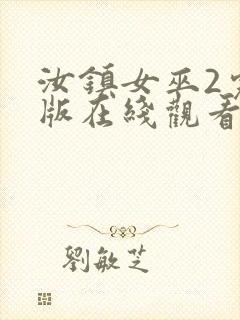 汝鎮女巫2
版在綫觀看
劉敏芝